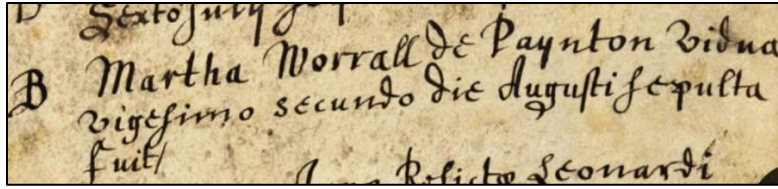 Sexto Junij
B Martha Worrall de Paynton Vidua
vigesimo secundo die Augusti sepulta
fuit/
Relicta Leonardi